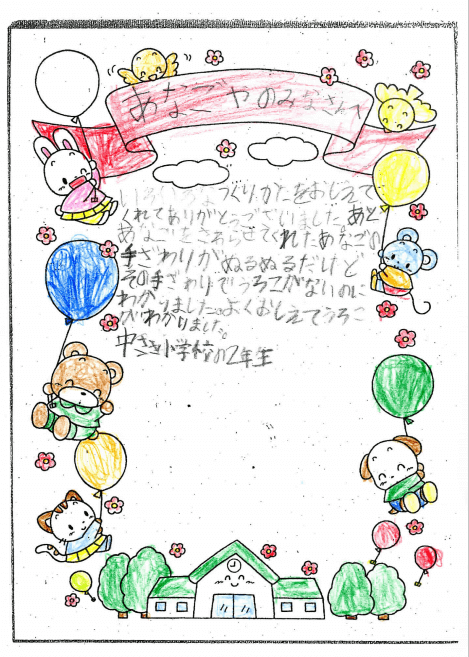 あなごやのみなさんへ
いろいろなつくりかたをおしえて
くれてありがとうございました。あと
あなごをさわらせてくれたあなごの
手ざわりがぬるぬるだけど
その手ざわりでうろこがないのに
わかりました。よくおしえてうろこ
がわかりました。
中さと小学校の2年生